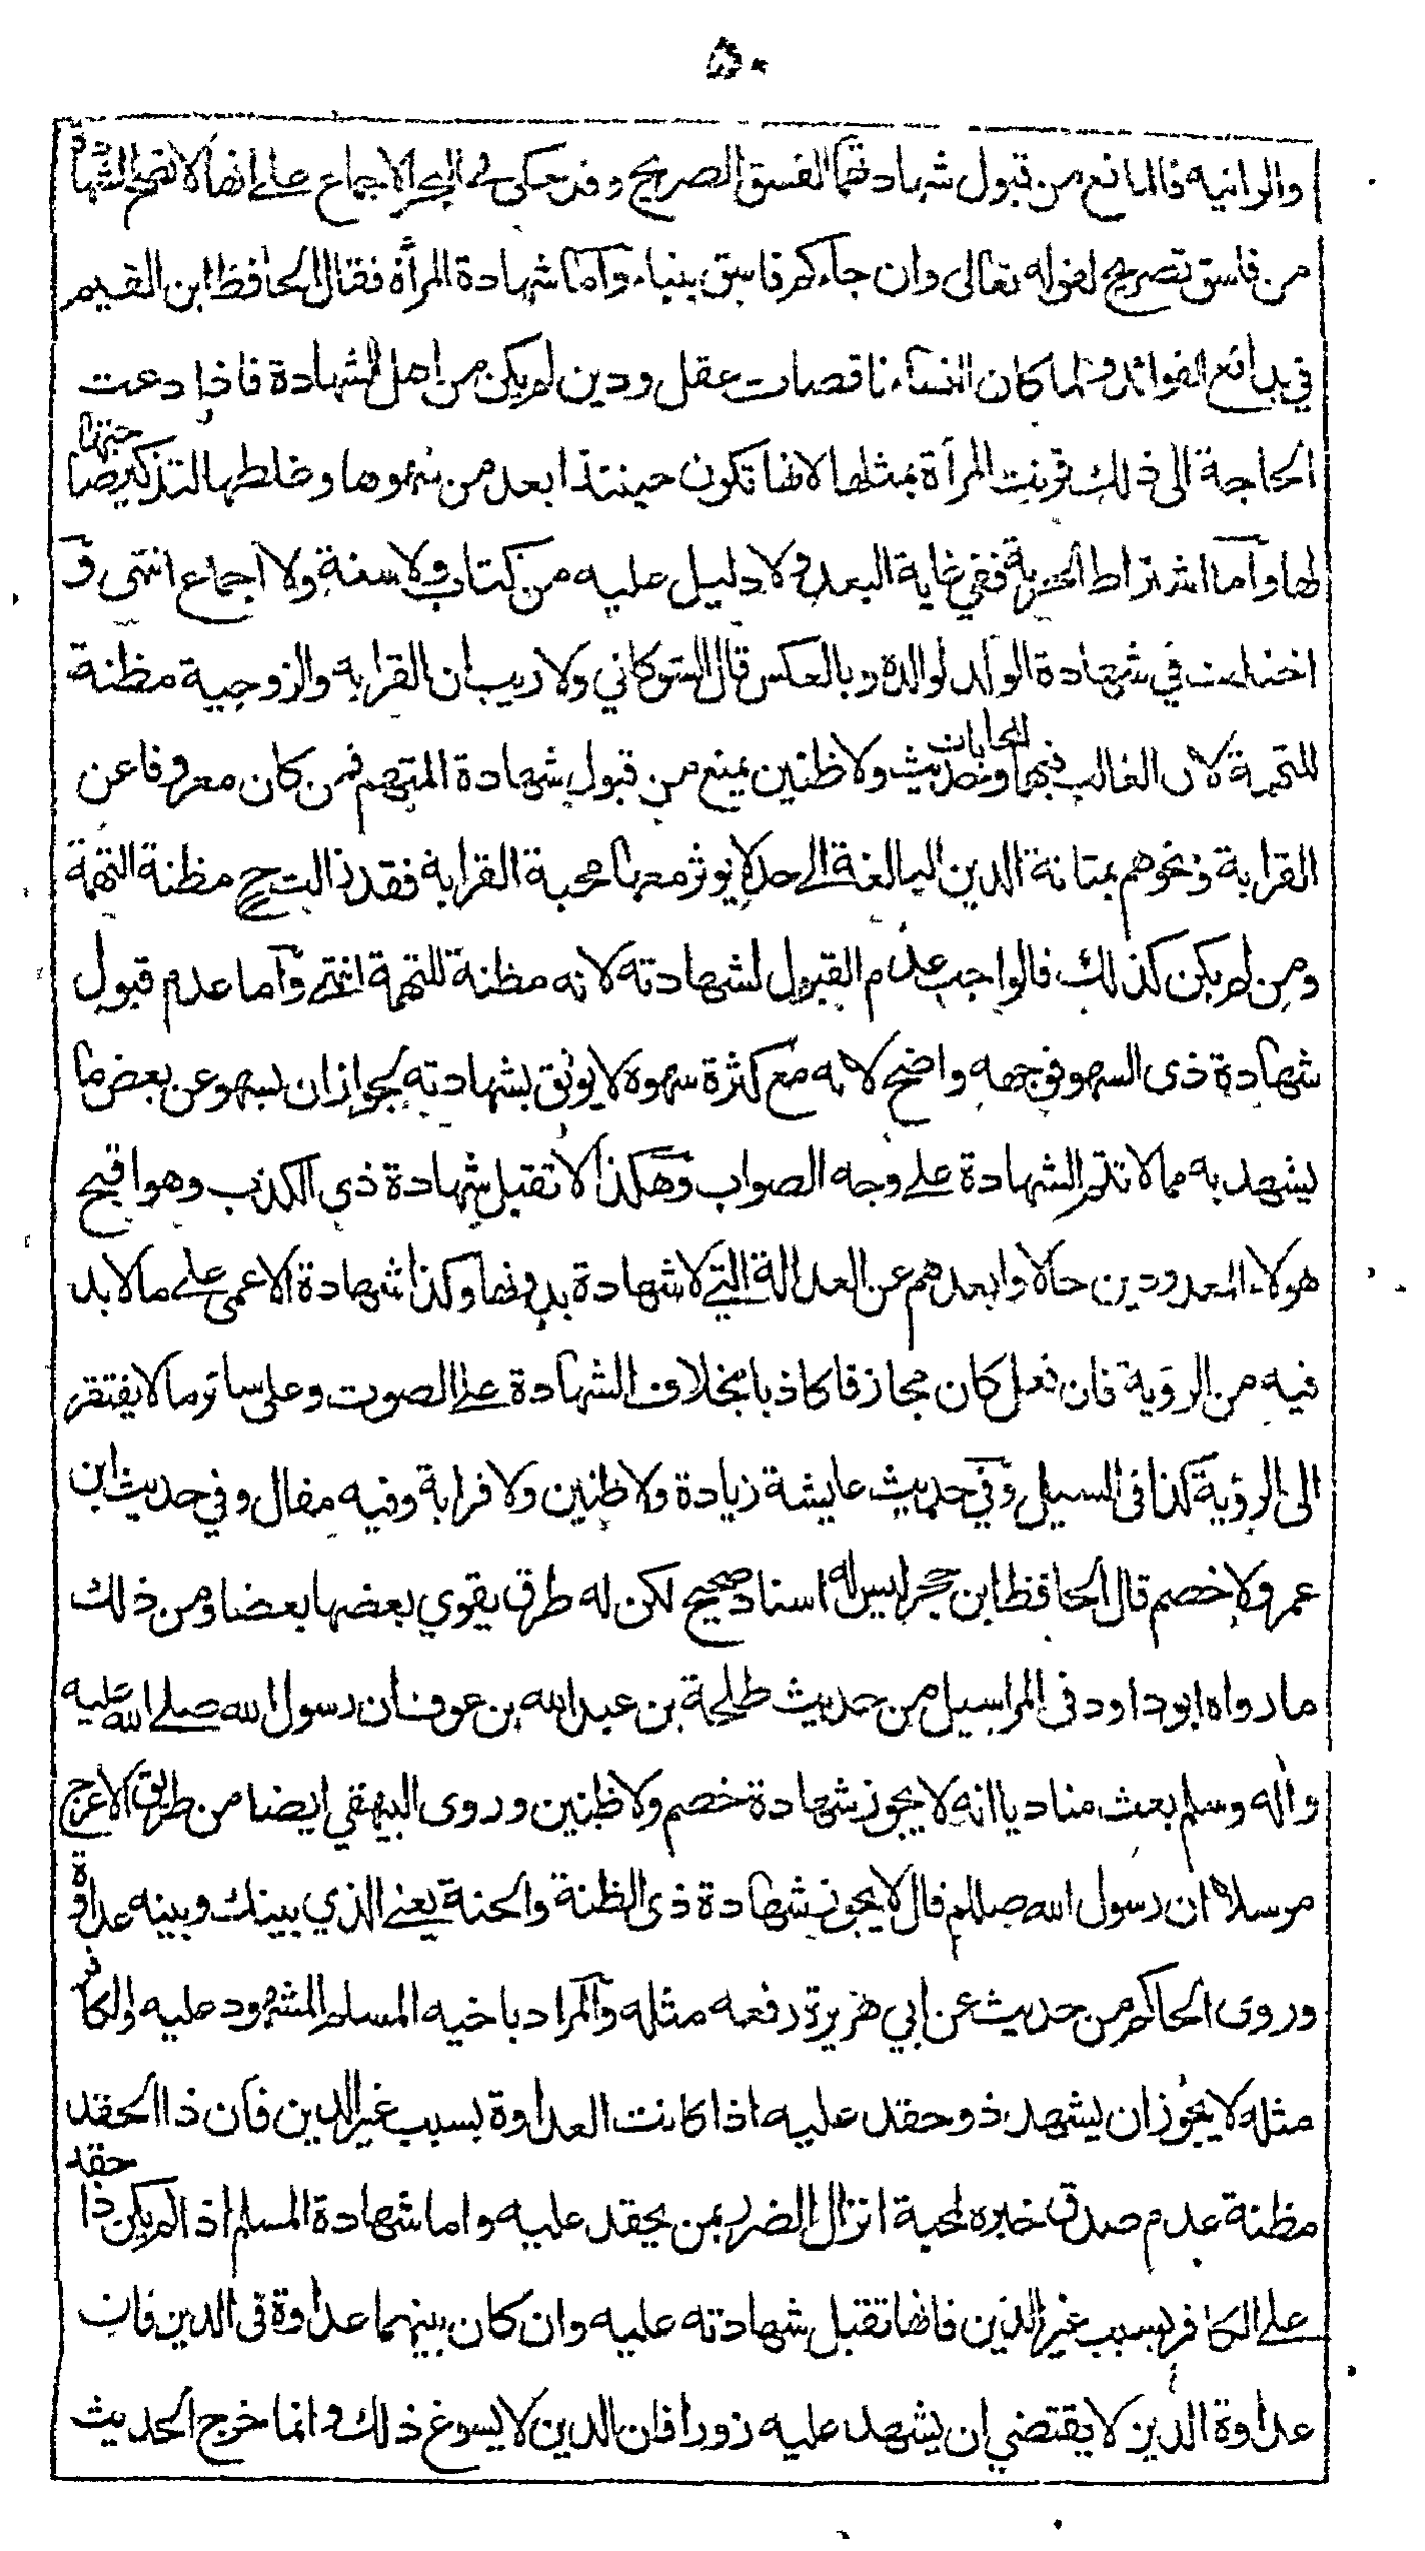 ۵۰
والزانية فالمانع من قبول شهادتهما الفسق الصريح وقد حكى فى البحر الاجماع على انها لا تصح الشهادة
من فاسق تصريح لقوله تعالى وان جاءكم فاسق بنباء وآما شهادة المرأة فقال الحافظ ابن القيم
في بدائع الفوائد ولما كان النساء ناقصات عقل ودين لم يكن من اهل الشهادة فاذا دعت
الحاجة الى ذلك قرنت المرأة بمثلها لانها تكون حينئذ ابعد من سهوها وغلطها لتذكير صاحبتها
لها وآما اشتراط الحرية ففي غاية البعد ولا دليل عليه من كتاب ولا سنة ولا اجماع انتهى و
اختلف في شهادة الولد لوالده وبالعكس قال الشوكاني ولا ريب ان القرابه والزوجية مظنة
للتهمة لان الغالب فيهما المحابات وحديث ولا ظنين يمنع من قبول شهادة المتهم فمن كان معروفا عن
القرابة ونحوهم بمتانة الدين البالغة الى حد لا يوثر معها محبة القرابة فقد زالت ح مظنة التهمة
ومن لم يكن كذلك فالواجب عدم القبول لشهادته لانه مظنة للتهمة انتهے وآما عدم قبول
شهادة ذى السهو فوجهه واضح لانه مع كثرة سهوه لا يوثق بشهادته لجواز ان يسهو عن بعض ما
يشهد به مما لا تتم الشهادة على وجه الصواب وهكذا لا تقبل شهادة ذي الكذب وهو اقبح
هولاء المعدودين حالا وابعدهم عن العدالة التے لا شهادة بدونها وكذا شهادة الاعمى على ما لا بد
فيه من الرؤية فان فعل كان مجازفا كاذبا بخلاف الشهادة على الصوت وعلى سائر ما لا يفتقر
الى الرؤية كذا فى السيل وفي حديث عايشة زيادة ولا ظنين ولا قرابة وفيه مقال وفي حديث ابن
عمر ولا خصم قال الحافظ ابن حجر ليس له اسناد صحيح لكن له طرق يقوي بعضها بعضا ومن ذلك
ما رواه ابو داود فى المراسيل من حديث طلحة بن عبد الله بن عوف ان رسول الله صلے الله عليه
واله وسلم بعث مناديا انه لا يجوز شهادة خصم ولا ظنين وروى البيهقي ايضا من طريق الاعرج
مرسلا ان رسول الله صللم قال لا يجوز شهادة ذى الظنة والحنة يعنے الذي بينك وبينه عداوة
وروى الحاكم من حديث عن ابي هريرة رفعه مثله وآلمراد باخيه المسلم المشهود عليه والكافر
مثله لا يجوز ان يشهد ذو حقد عليه اذا كانت العداوة بسبب غير الدين فان ذا الحقد
مظنة عدم صدق خبره لمحبة انزال الضرر بمن يحقد عليه واما شهادة المسلم اذا لم يكن ذا حقد
على الكافر بسبب غير الدين فانها تقبل شهادته عليه وان كان بينهما عداوة فى الدين فان
عداوة الدين لا يقتضي ان يشهد عليه زورا فان الدين لا يسوغ ذلك وانما خرج الحديث